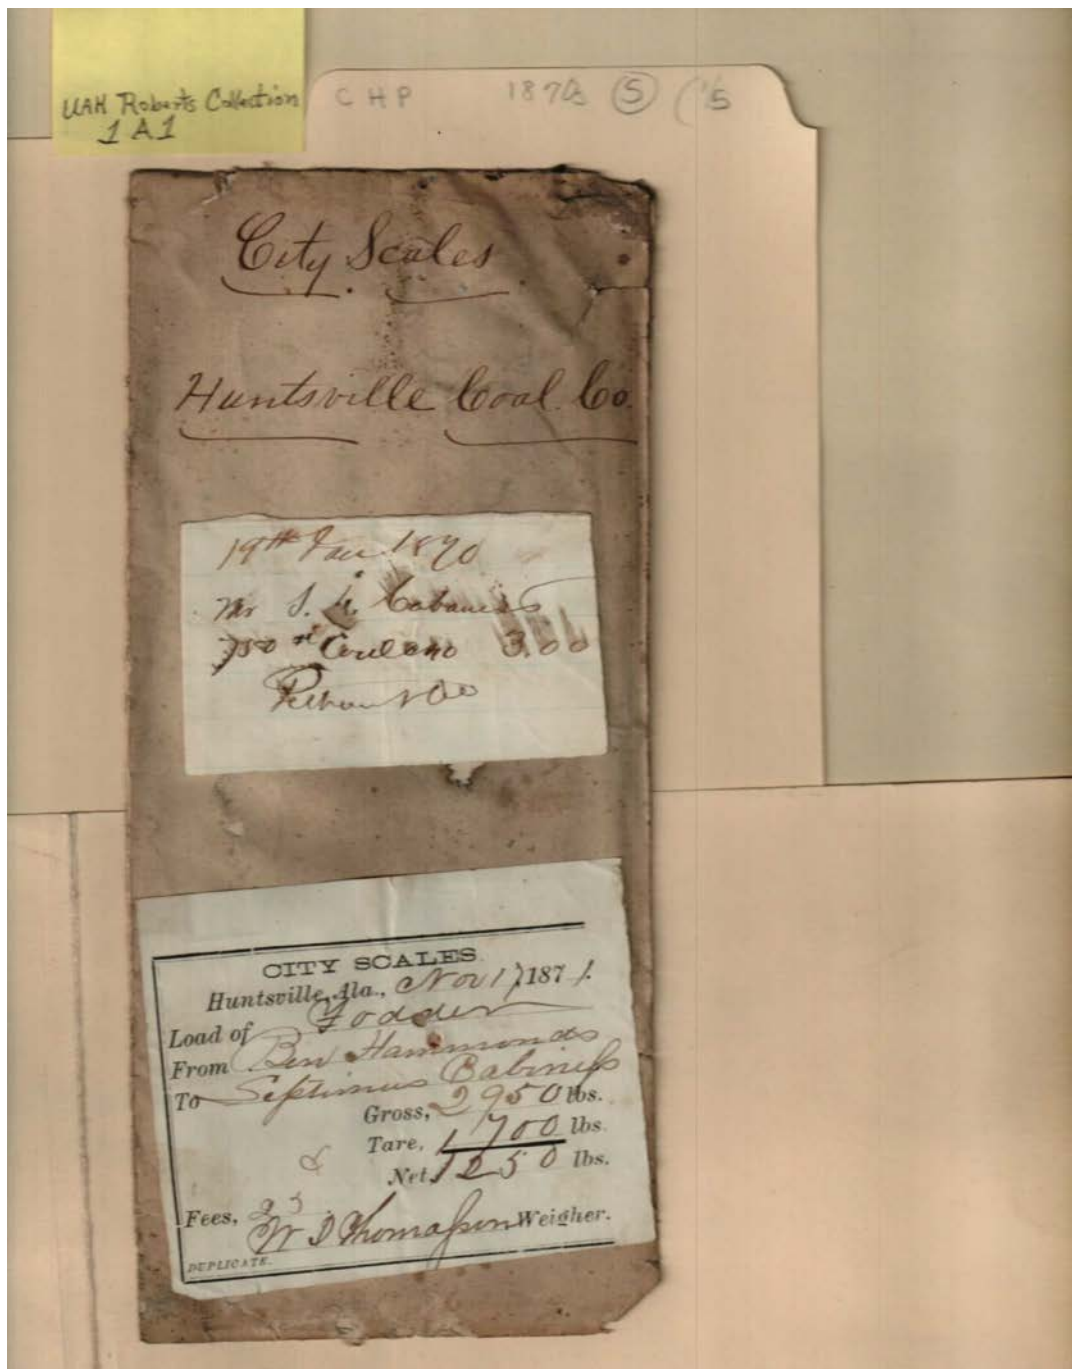 UAH Roberts Collection
1 A 1
CHP 1870s (5) (15
City Scales
Huntsville Coal Co.
19th Jan 1870
Mr S. Cabaniss
750 3.00
CITY SCALES.
Huntsville, Ala., Nov 17, 1871.
Load of Fodder
From Ben Hammonds
To Septimus Cabiness
Gross, 2950 lbs.
Tare, 1700 lbs.
Net, 1250 lbs.
Fees, 25
W D Thomasson Weigher.
DUPLICATE.